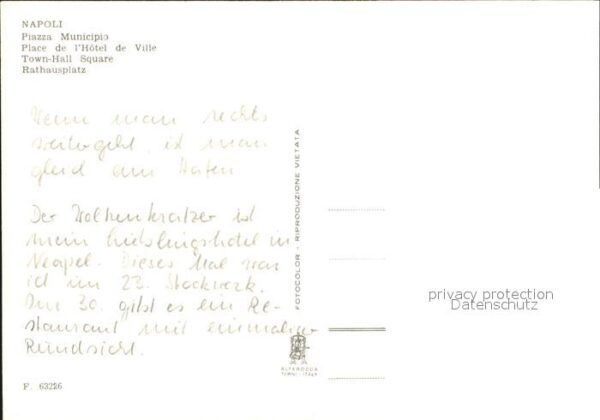 NAPOLI
Piazza Municipio
Place de l'Hôtel de Ville
Town-Hall Square
Rathausplatz
Wenn man rechts
weitergeht, ist man
gleich am Hafen
Der Wolkenkratzer ist
mein Lieblingshotel in
Neapel. Dieses Mal war
ich im 23. Stockwerk.
Im 30. gibt es ein Re-
staurant mit einmaliger
Rundsicht.
FOTOCOLOR - RIPRODUZIONE VIETATA
privacy protection
Datenschutz
ALTEROCCA
TERNI - ITALY
F. 63226